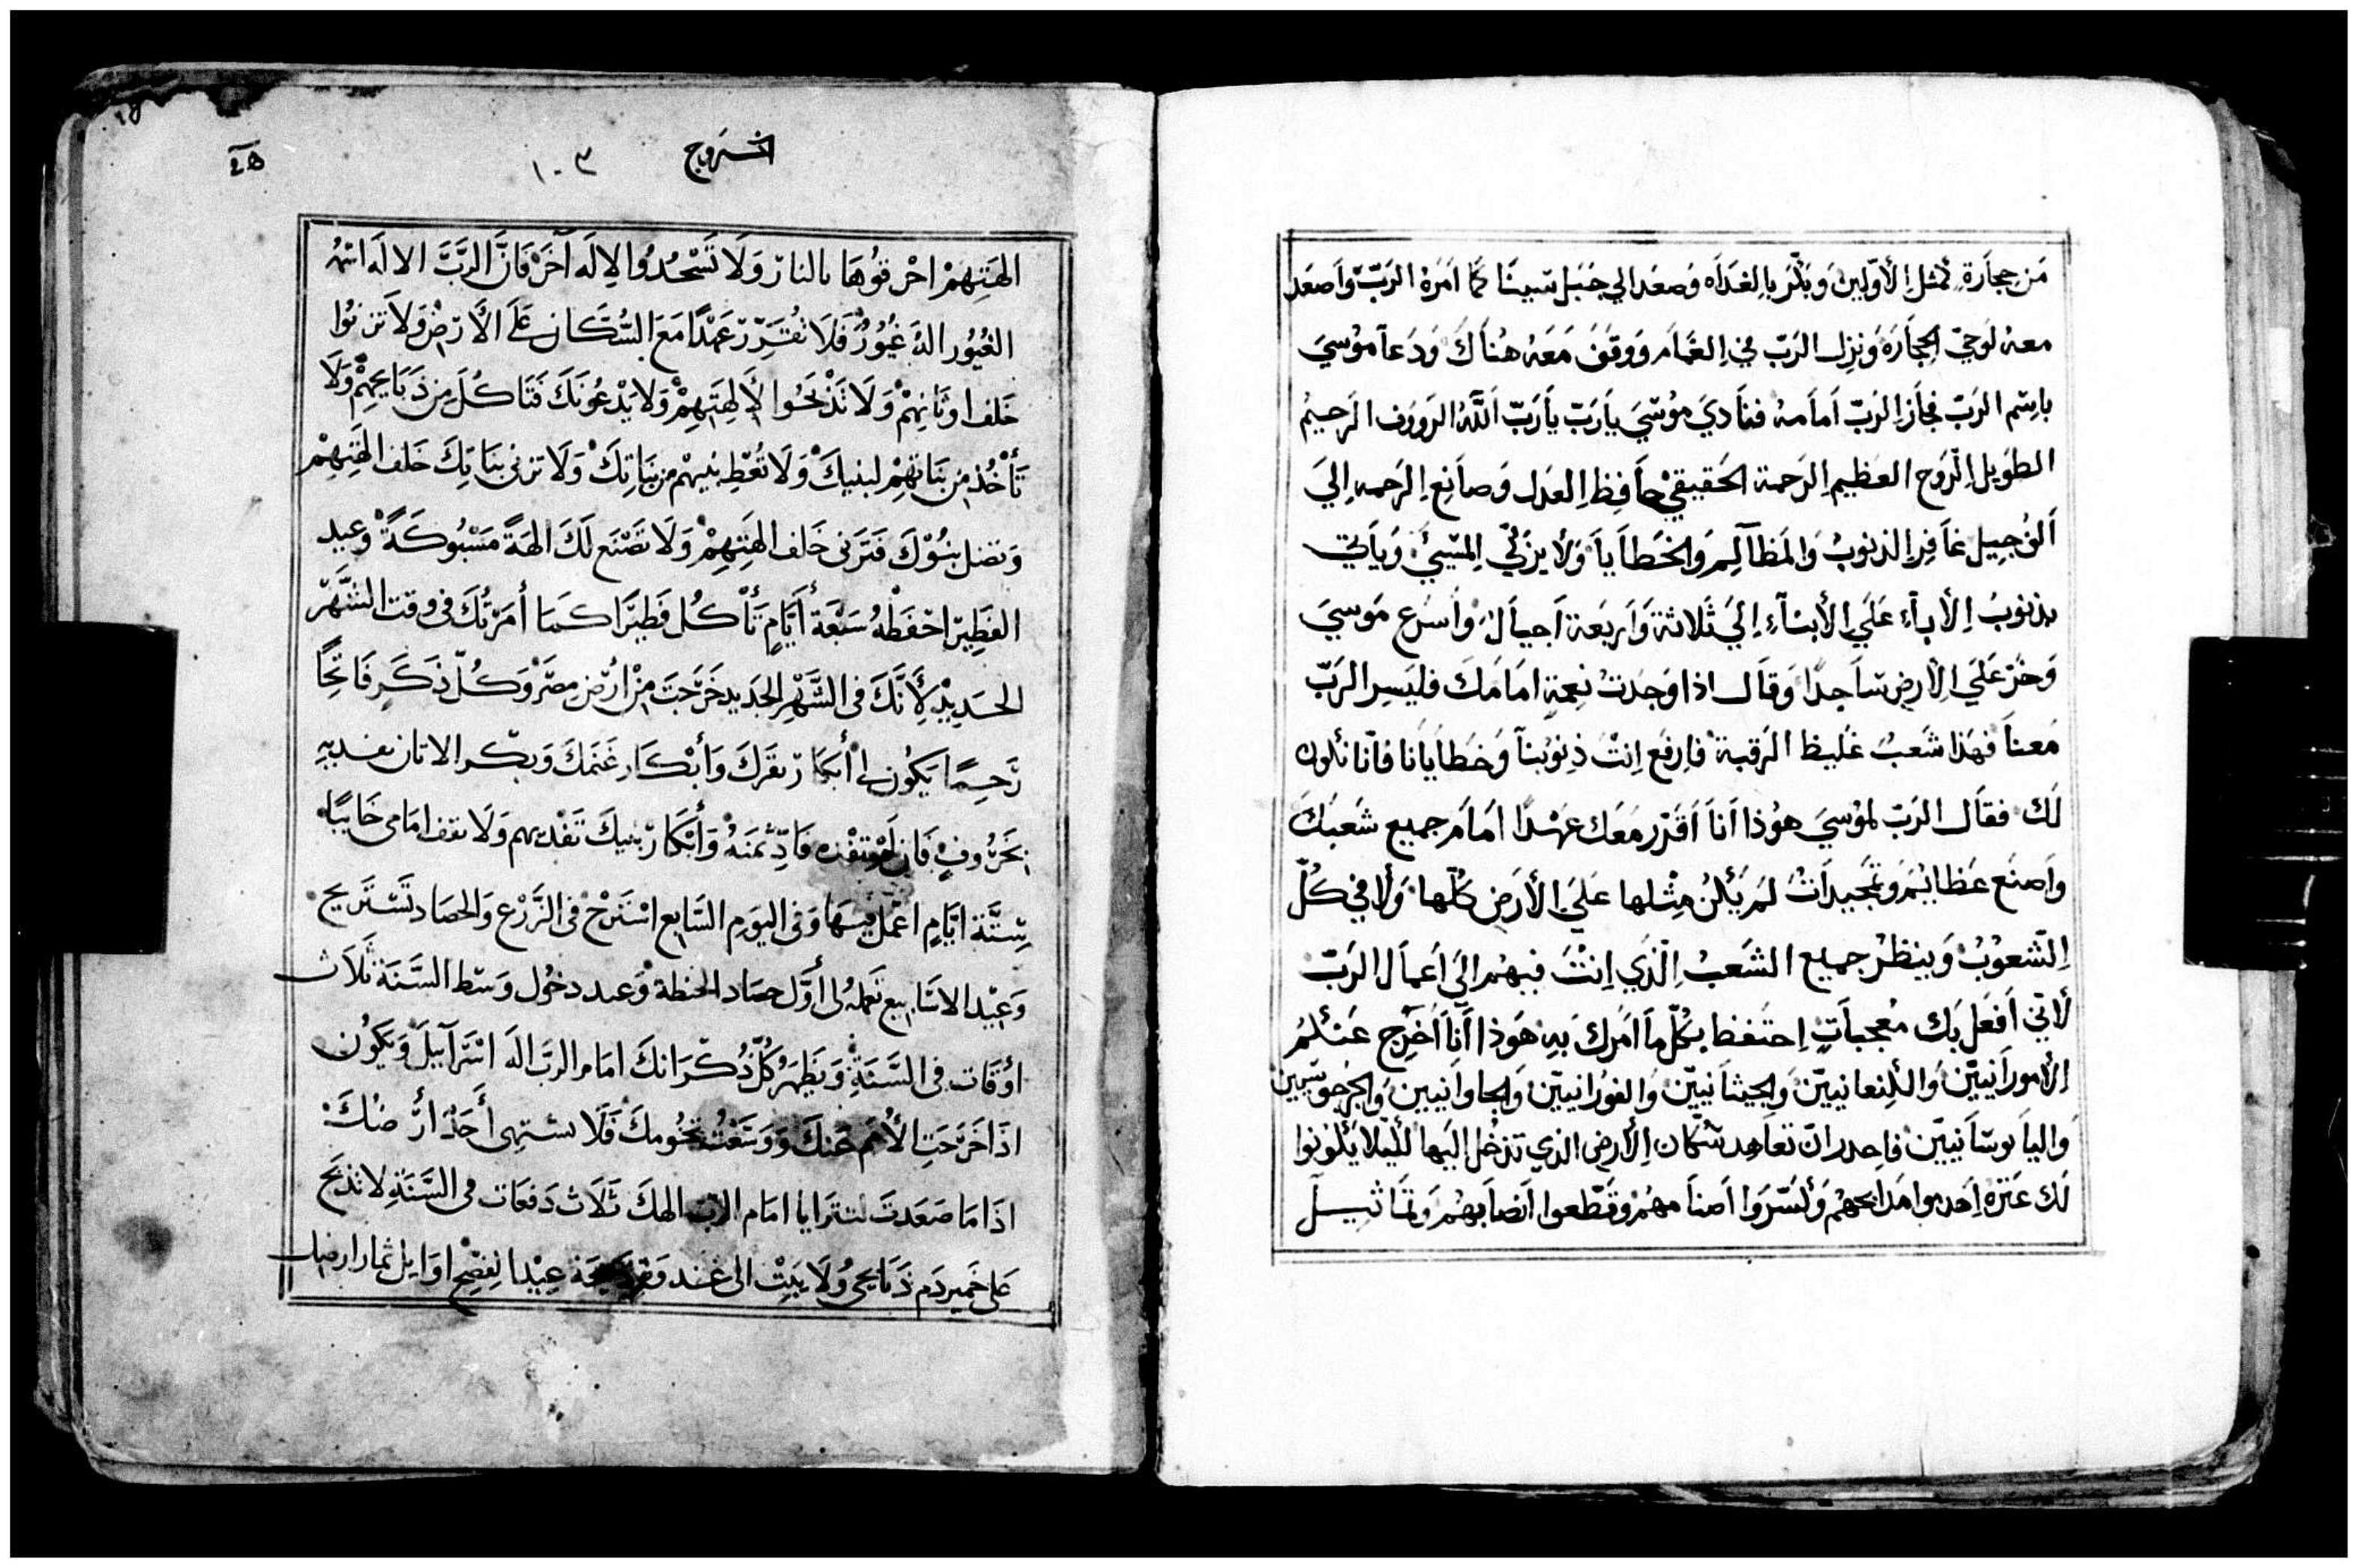 مَن حِجارَة مثل الأوّلين وَبَكّرَ بالغدَاه وَصعَد الي جَبَل سينَا كَما اَمَرهُ الرَبّ وَاَصعَد
معهُ لوحَيّ الحِجَارَة وَنزل الرَبّ في الغمَامَ وَوقفَ مَعَهُ هُناكَ وَدَعاَ موُسيَ
باسِم الرَبّ فجاَز الرَبّ اَماَمهُ فناَديَ موُسَيَ ياَرَبّ ياَرَبّ اَللّهُ الرَووف الرَحيمُ
الطوَيل الرَوح العَظيم الرَحمة الحَقيقيْ حاَفِظ العدَل وَصاَنِع الرَحمه اِليَ
اَلف جِيل غاَفِر الذنوبُ وَالمَظاَلِم وَالخَطاَياَ وَلاَ يزَكّي المسّيئ وَياَتي
بذنوبُ الأباَءِ عَلَي الأبنَآءِ اِليَ ثَلاثة وَاَربَعة اَجياَل وَاَسرَع مَوسيَ
وَخَرّ عَلَي الأرض سَاجدًا وَقاَل اذا وَجَدتُ نِعمةِ امَامَكَ فليَسِر الرَبّ
مَعناَ فهَذا شَعبُ غَليظ الرَقبة فاِرفَع اِنتْ ذِنوُبناَ وَخَطاَياَنا فانّا نكون
لَكَ فقاَل الرَبّ لموُسيَ هوُذا اَناَ اَقَرّر مَعَك عَهدًا امَامَ جميع شَعبكَ
واَصنَع عَظايم وتمجيداَتْ لمَ يَكُنُ مِثلها علَيَ الأرَض كُلّها وَلا في كُلّ
الشعوُبُ وَينظرُ جميع الشَعبُ الّذي انتَ فيهم اليَ اَعماَل الرَبّ
لأنّي اَفعَل بكَ مُعجباَتِ اِحتَفظ بكُلّ ماَ اَمُرك بهِ هَوذا اَناَ اُخرِج عَنكمُ
الأموراَنييّن وَالكنعانييّن وَالحيثاَنييّن وَالفوُرانييّن وَالحاواَنيين وَالجَرجوسّيين
وَالياَبوسَاَنييّن فاحدر ان تعاَهد سكّان الأرض الذي تدخُل اليَها لئيلا يَكونوا
لَك عَترَه اِهدموا مَدابحهم وَكسّروَا اَصناَمهُم وَقَطّعوا اَنصاَبهُم وَتماَثيل
اخروج
١٠٣
الهَتِهِمْ احْرقوُهَا بالنار وَلَا تَسْجُدُوا لإِلَه آخَرَ فَانَّ الرَّبَّ الالَه اسْمُه
الغيُور الهٌ غيُورٌ فَلَا تُقَرِّر عَهْدًا مَعَ السُّكَّان عَلَي الأَرْضِ وَلَا تَزنوُا
خَلف اوثَانِهِمْ وَلَا تَذْبَحُوا لأَلِهَتِهِمْ وَلا يَدْعُونَكَ فَتَاكُل مِن ذَبَايحِهِمْ وَلَا
تَأْخُذ مِن بَنَاتِهِمْ لبنيكَ وَلَا تُعْطِ بَنِيهم مِن بَنَاتِكَ وَلَا تزنى بنَاتِكَ خَلف الهَتِهِمْ
وَتضل بنُوْكَ فتَزنى خَلف الهَتِهِمْ وَلَا تَصْنَع لَكَ الهَةً مَسْبُوكَةً وعيد
الفَطِير احْفَظْهُ سَبْعَةُ أيَّامٍ تَأْكُل فَطِيرًا كَمَا أمَرْتُكَ فى وقت الشَّهْر
الجديْد لِأَنَّكَ فى الشَّهْرِ الجَدِيد خَرَجتَ مِنْ ارْضِ مِصْر وَكُلّ ذَكَرٍ فَاتحًا
رَحِمًا يَكُون لى أبكَار بقَرَكَ وَأبْكَار غَنَمكَ وَبكر الاتان تفديهِ
بخَرُوفٍ فَان لَمْ تفْده فَادِّ ثمَنَهُ وَأبْكَار بنيكَ تَفْديهم وَلَا تقف امَامى خَايبًا
سِتَّة ايَّامٍ اعْمَل فيهَا وَفى اليوَمِ السَّابع اسْتَرِحْ فى الزَّرْع وَالحصَاد تَسْتَريح
وَعِيْد الاسَابيع تَعمَلهُ لى أوَّل حصَاد الحنطة وَعيد دخُول وَسَط السَّنَة ثَلَاث
اوْقَات فى السَّنَةِ وَيَظْهَرُ كُلّ ذُكْرَانكَ امَام الرَبّ الَه اسْرَآييل وَيَكُون
اذَا خَرَجَتِ الأُمَم عَنكَ وَوَسَّعْتُ تخُومكَ فَلَا يشتهى أَحَدٌ ارْضكَ
اذَا مَا صَعَدتَ لتتَرايا امَام الرَبّ الهكَ ثَلَاث دَفعَات فى السَّنَةِ لا تَذبَح
عَلى خَمير دَم ذَبَايحى وَلَا يَبِتْ الى غَد عِيْد الفِصْح اوَايل ثمَار ارضك